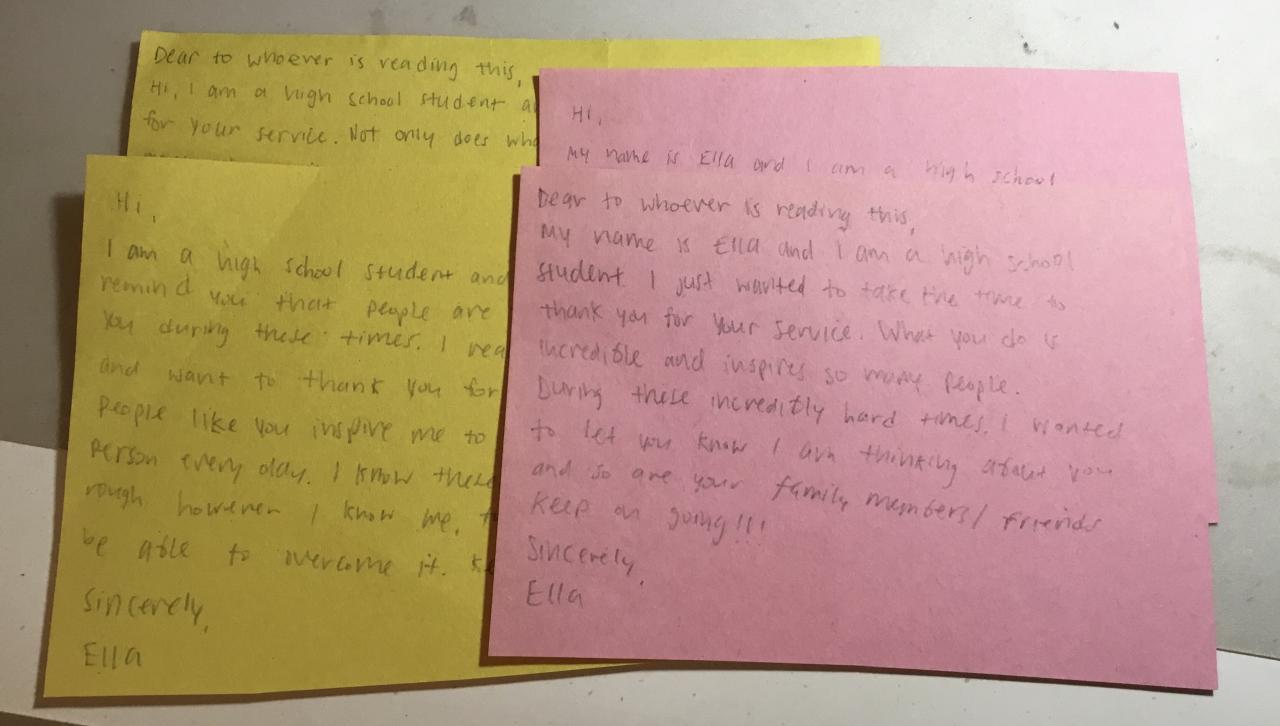 Dear to whoever is reading this,
Hi, I am a high school student
for your service. Not only does
Hi,
My name is Ella and I am a high school
Hi,
I am a high school student and
remind you that people are
you during these times. I
and want to thank you for
people like you inspire me to
person every day. I know these
rough however I know me,
be able to overcome it.
Sincerely,
Ella
Dear to whoever is reading this,
My name is Ella and I am a high school
student. I just wanted to take the time to
thank you for your service. What you do is
incredible and inspires so many people.
During these incredibly hard times, I wanted
to let you know I am thinking about you
and so are your family members/friends
Keep on going!!!
Sincerely,
Ella